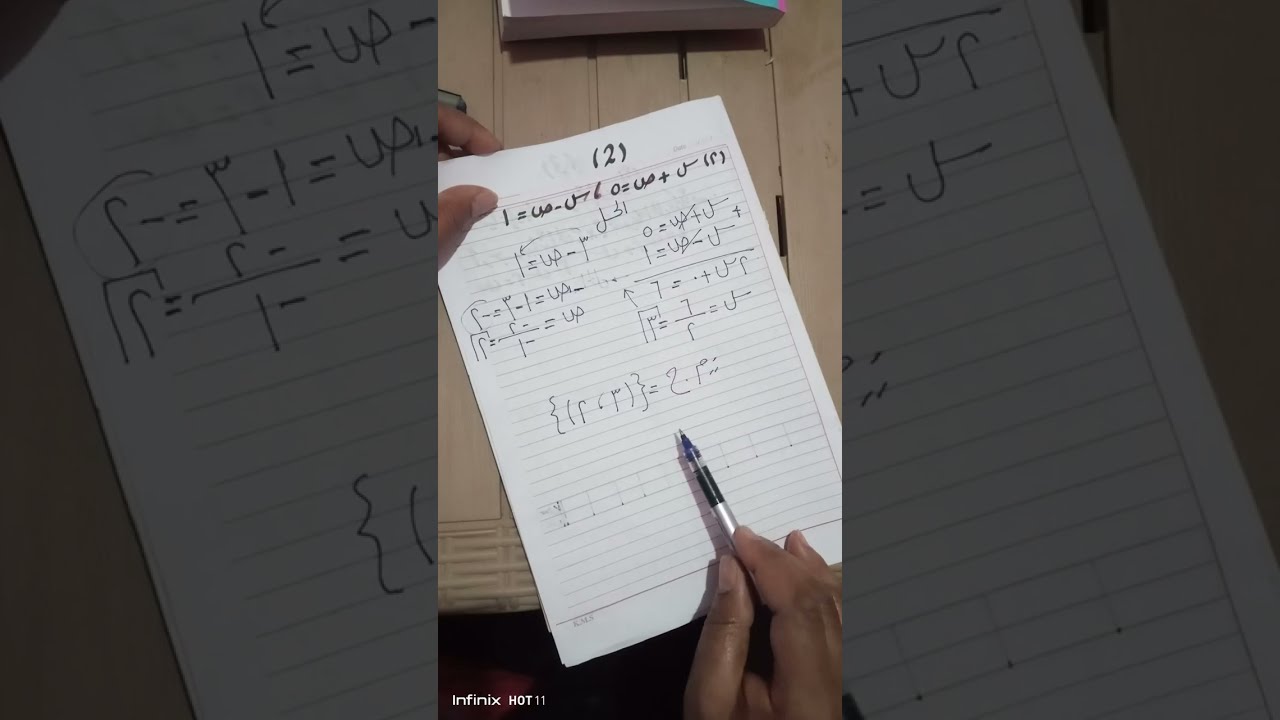 (2)
(٢) س + ص = ٥ ، س - ص = ١
الحل
+ س + ص = ٥
س - ص = ١
٢س + ٠ = ٦
س = ٦/٢ = ٣
٣ - ص = ١
- ص = ١ - ٣ = - ٢
ص = - ٢/- ١ = ٢
∴ م.ح = {(٣ ، ٢)}
K.M.S
Infinix HOT 11